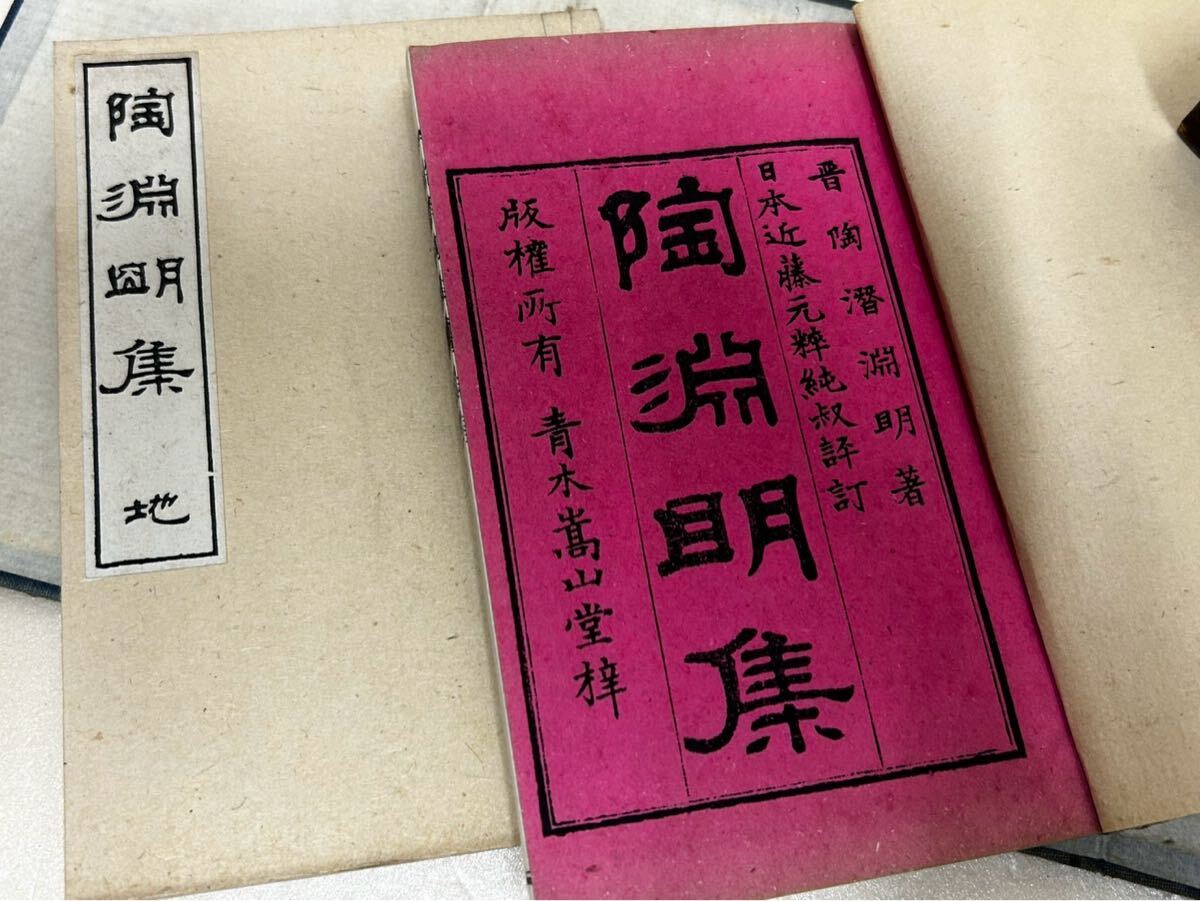 陶淵明集 地
晋 陶潛淵明著
日本近藤元粹純叔評訂
陶淵明集
版權所有 青木嵩山堂梓